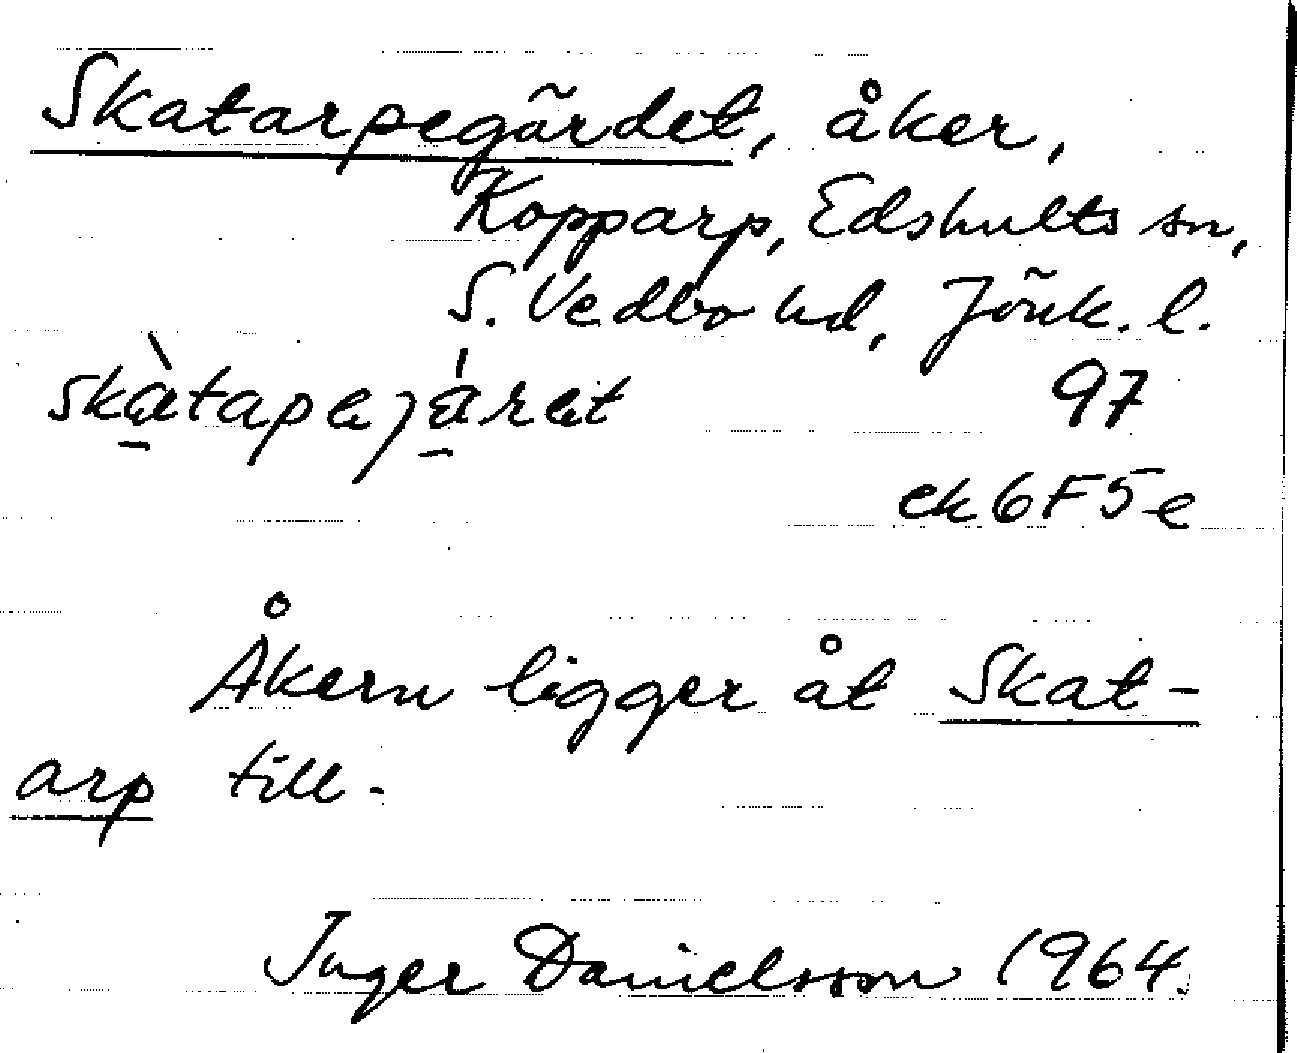 Skatarpegärdet, åker,
Kopparp, Edshults sn,
S. Vedbo hd, Jönk. l.
97
ek 6F5e
Åkern ligger åt Skat-
arp till.
Inger Danielsson 1964.